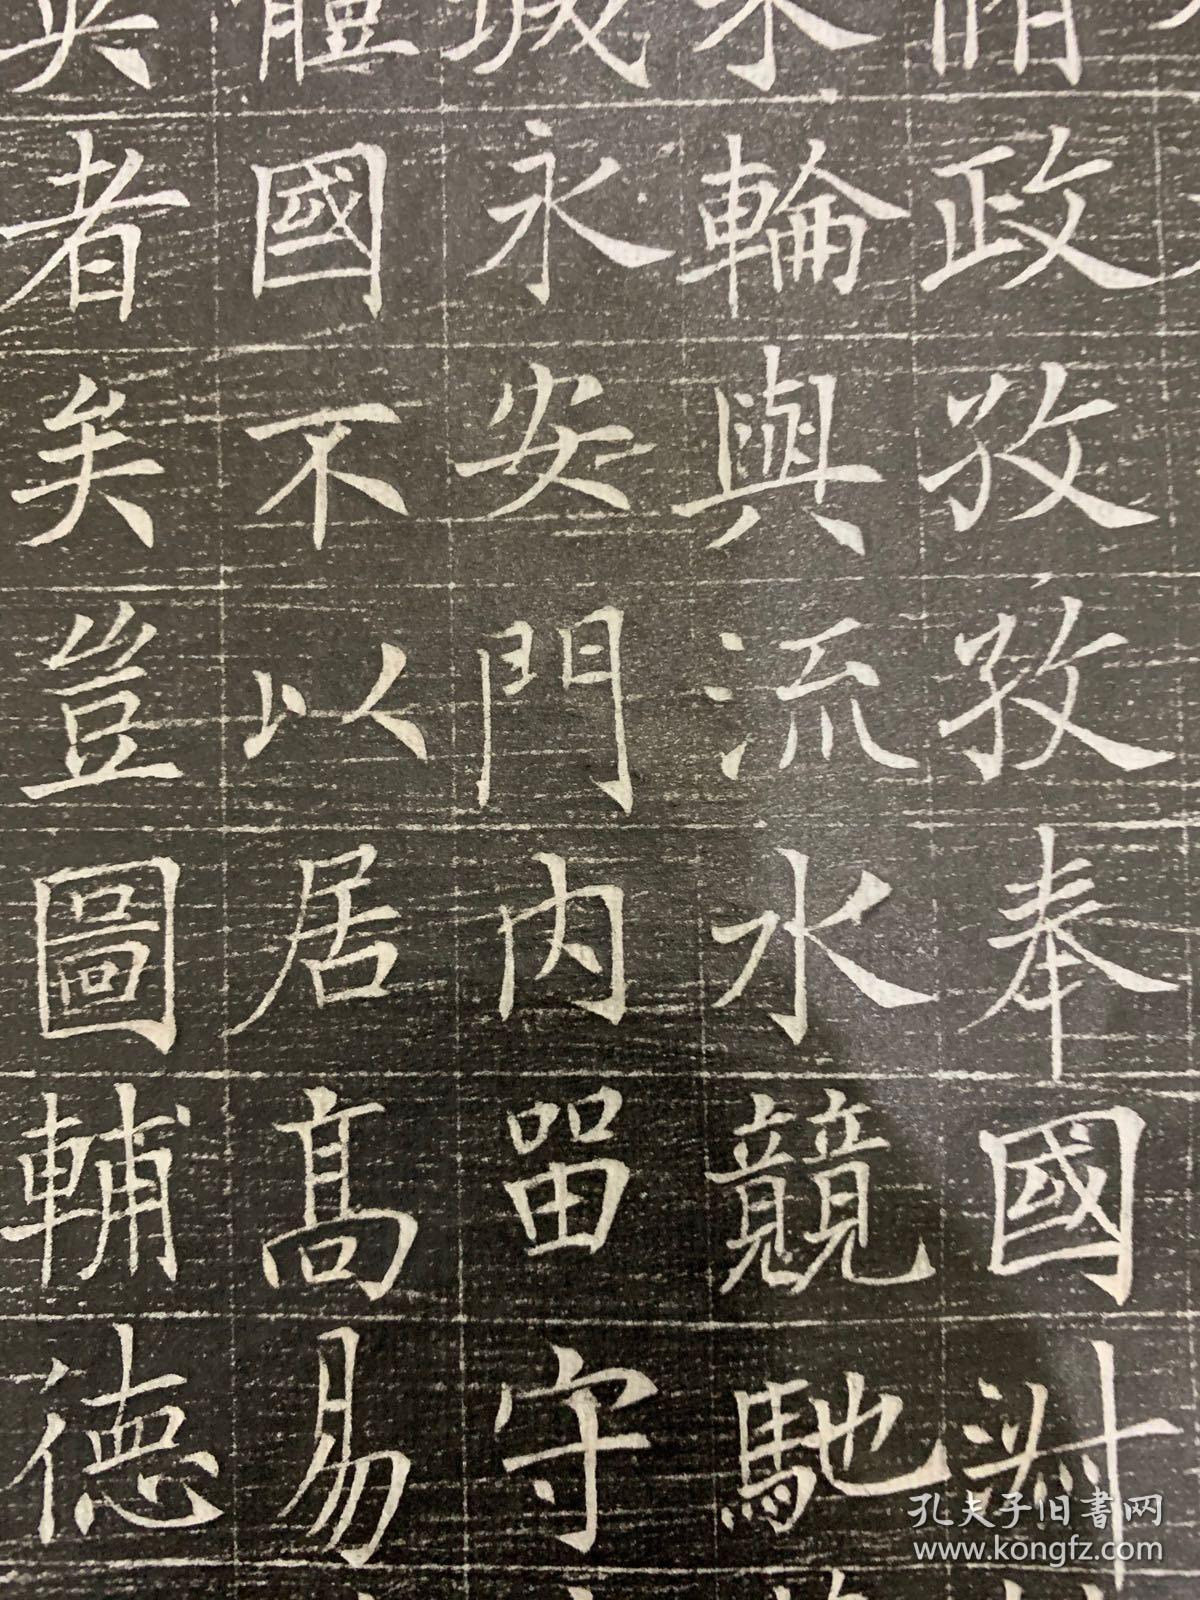 政孜孜奉國淵
朱輪與流水競馳
城永安門内留守
體國不以居髙易
者矣豈圖輔德
孔夫子旧書网
www.kongfz.com